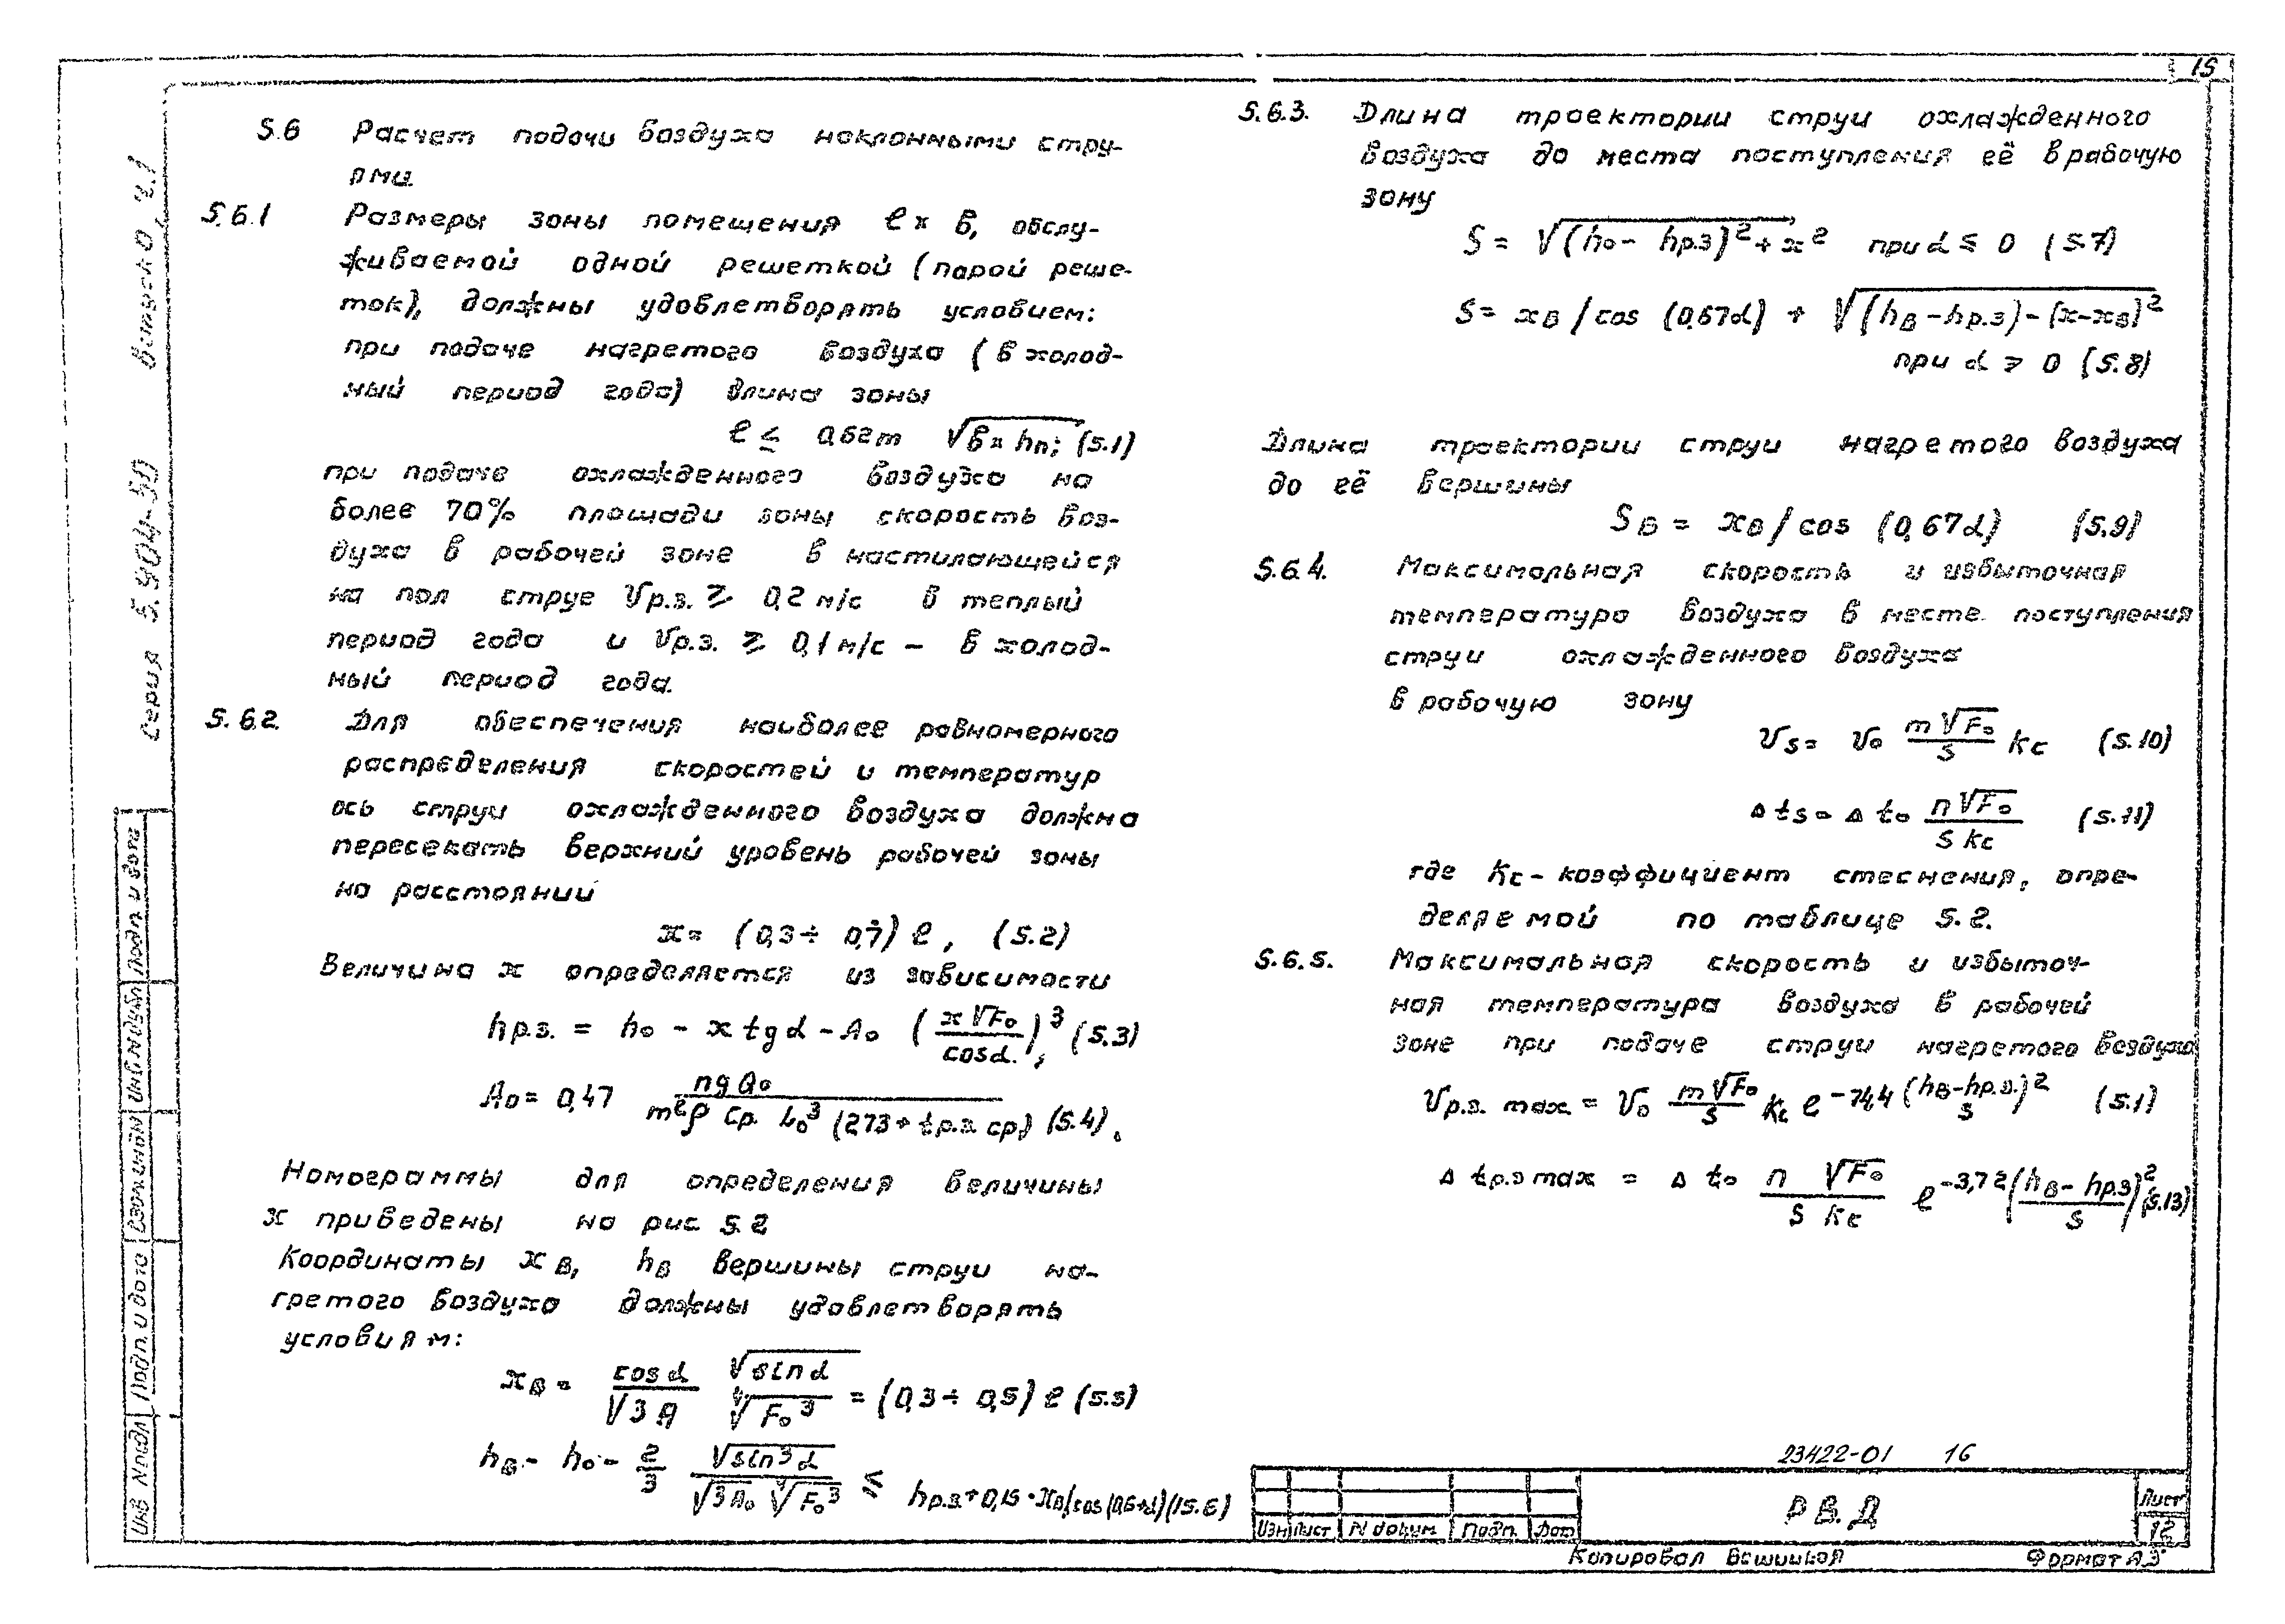 15
5.6 Расчет подачи воздуха наклонными стру-
ями.
5.6.1 Размеры зоны помещения l × в, обслу-
живаемой одной решеткой (парой реше-
ток), должны удовлетворять условием:
при подаче нагретого воздуха (в холод-
ный период года) длина зоны
l ≤ 0,62m √в×hп; (5.1)
при подаче охлажденного воздуха на
более 70% площади зоны скорость воз-
духа в рабочей зоне в настилающейся
на пол струе Vр.з. ≥ 0,2 м/с в теплый
период года и Vр.з. ≥ 0,1 м/с – в холод-
ный период года.
5.6.2. Для обеспечения наиболее равномерного
распределения скоростей и температур
ось струи охлажденного воздуха должна
пересекать верхний уровень рабочей зоны
на расстоянии
x = (0,3 ÷ 0,7) l, (5.2)
Величина x определяется из зависимости
hр.з. = h₀ - x tg α - A₀ (x √F₀ / cos α.)³, (5.3)
A₀ = 0,47 ng Q₀ / m²ρ Cp. L₀³ (273 + tр.з. ср.) (5.4).
Номограммы для определения величины
x приведены на рис. 5.2
Координаты xв, hв вершины струи на-
гретого воздуха должны удовлетворять
условиям:
xв = cos α / √3 A √sin α / ∜F₀³ = (0,3 ÷ 0,5) l (5.5)
hв - h₀ - 2/3 √sin³ α / √3 A₀ ∜F₀³ ≤ hр.з. + 0,15 · xв/cos (0,6+α) (5.6)
5.6.3. Длина траектории струи охлажденного
воздуха до места поступления её в рабочую
зону
S = √(h₀ - hр.з)² + x² при α ≤ 0 (5.7)
S = xв / cos (0,67α) + √(hв - hр.з) - (x-xв)²
при α ≥ 0 (5.8)
Длина траектории струи нагретого воздуха
до её вершины
Sв = xв / cos (0,67α) (5.9)
5.6.4. Максимальная скорость и избыточная
температура воздуха в месте поступления
струи охлажденного воздуха
в рабочую зону
Vs = V₀ m √F₀ / S Kc (5.10)
Δts = Δt₀ n √F₀ / S Kc (5.11)
где Kc - коэффициент стеснения, опре-
деляемой по таблице 5.2.
5.6.5. Максимальная скорость и избыточ-
ная температура воздуха в рабочей
зоне при подаче струи нагретого воздуха
Vр.з. max = V₀ m √F₀ / S Kc e^-74,4 (hв - hр.з. / S)² (5.1)
Δ tр.з max = Δ t₀ n √F₀ / S Kc e^-3,72 (hв - hр.з / S)² (5.13)
23422-01 16
Изм Лист N докум. Подп. Дат
Р В. Д
Лист
12
Копировал
Формат А3
Серия 5.904-50 Выпуск 0, ч.1
Подп. и дата
Инв. N дубл
Взам. инв N
Подп. и дата
Инв N подл